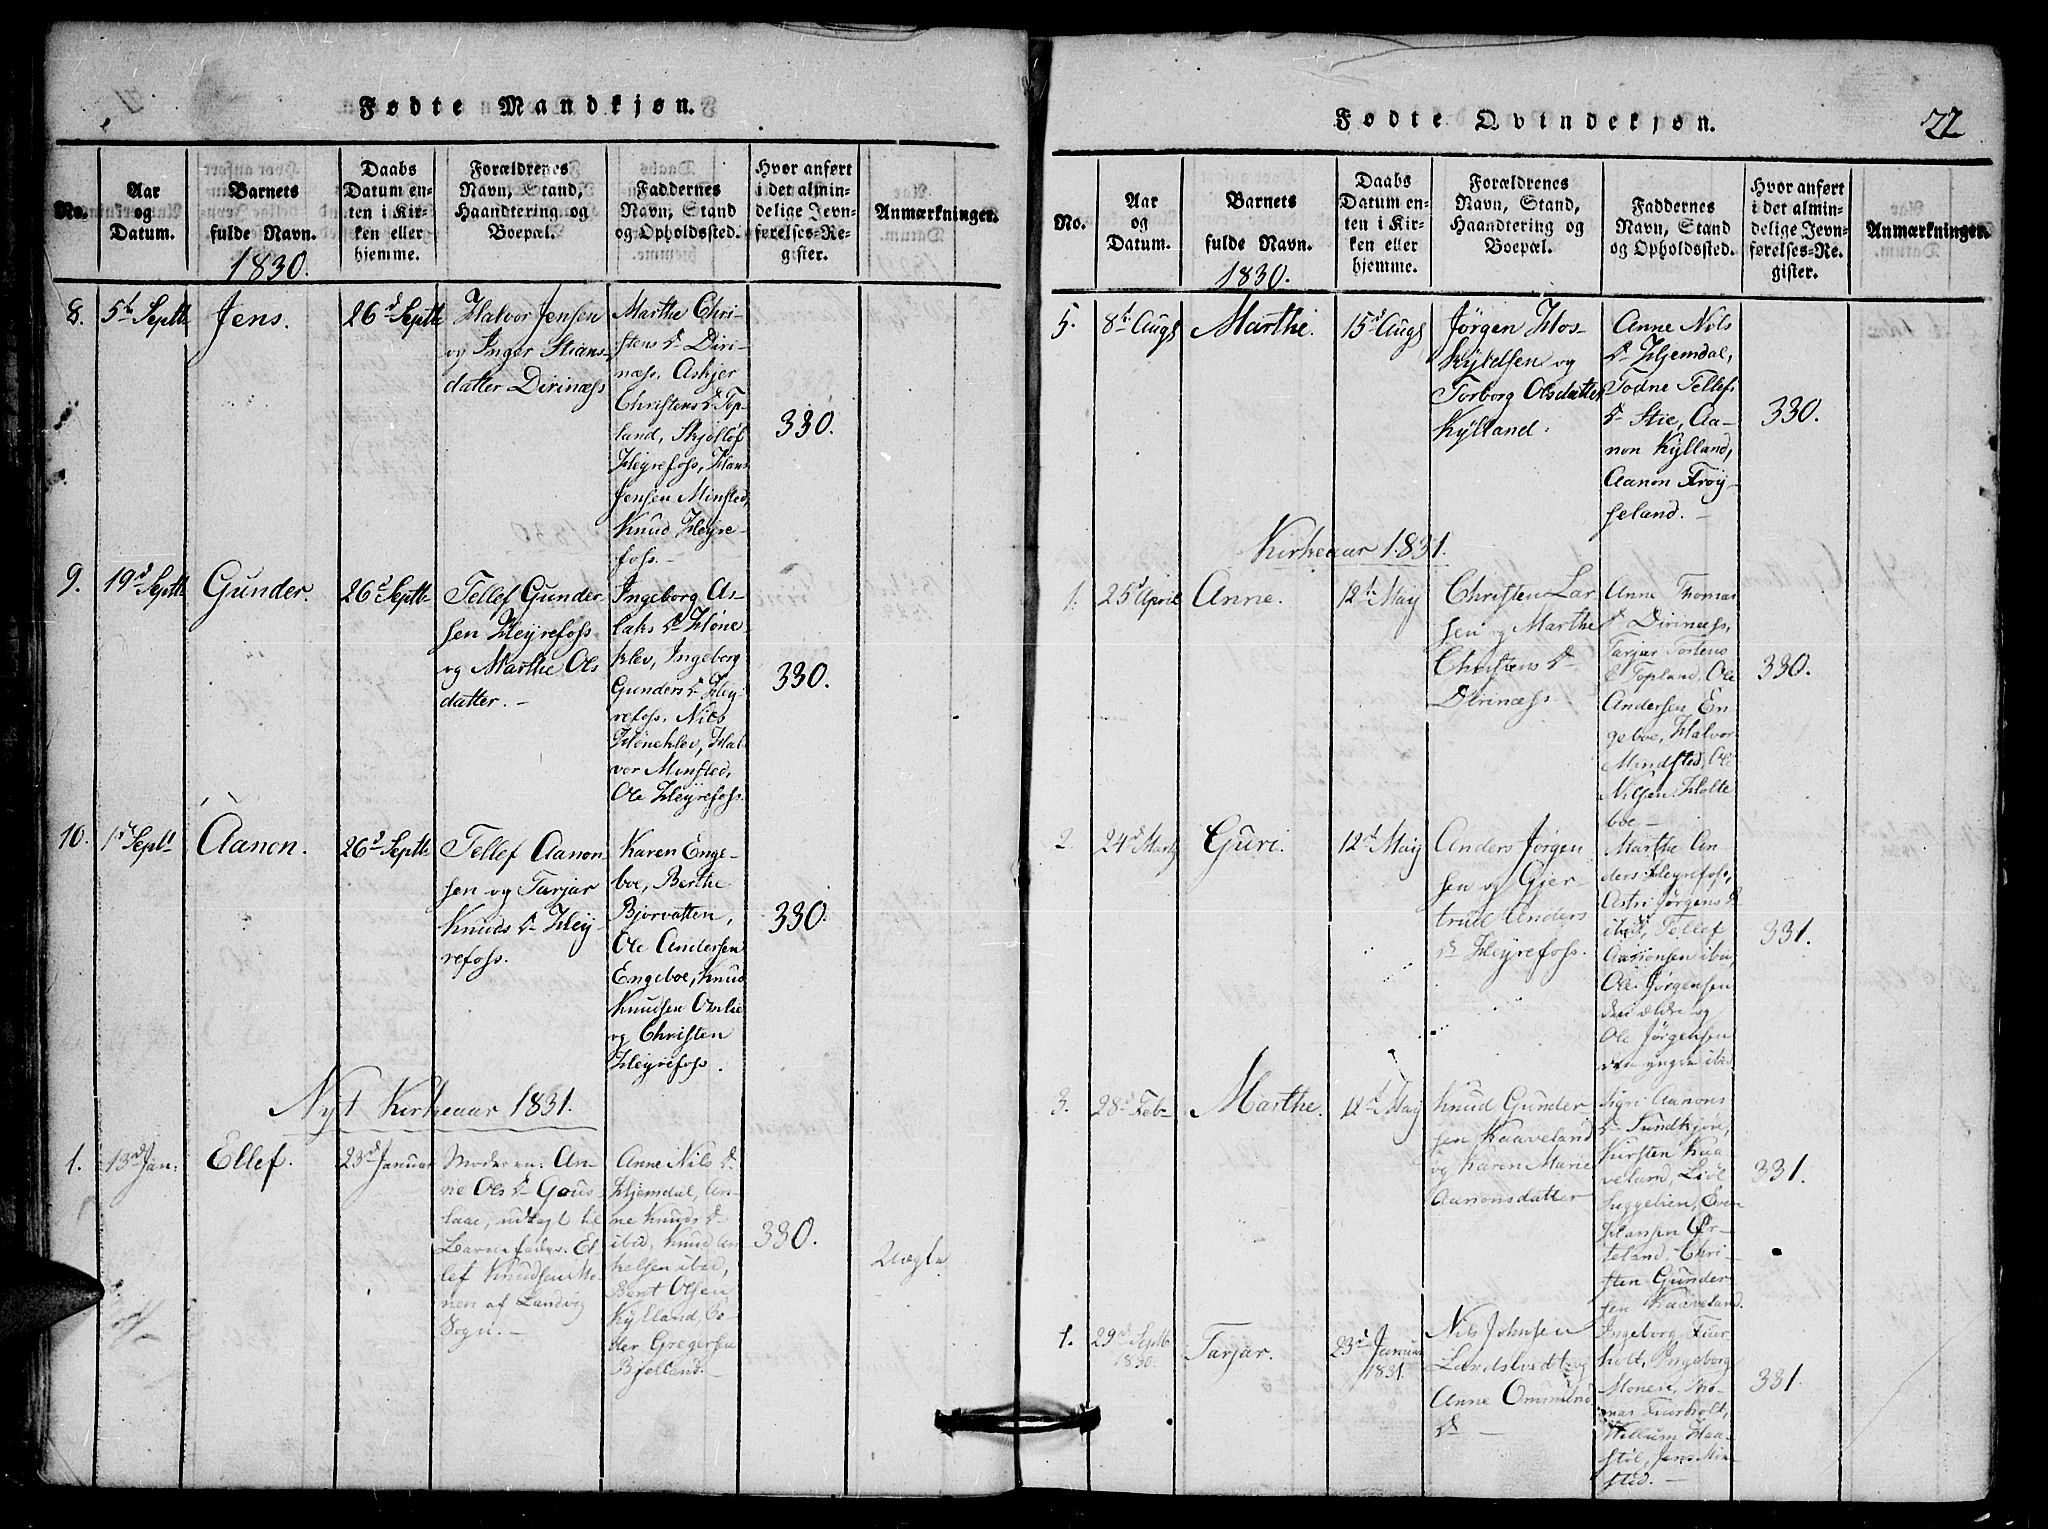 Fødte Mandkjøn.
No.
Aar
og
Datum.
Barnets
fulde Navn.
1830.
Daabs
Datum en-
ten i Kir-
ken eller
hjemme.
Forældrenes
Navn, Stand,
Haandtering og
Boepæl.
Faddernes
Navn, Stand
og Opholdssted.
Hvor anført
i det almin-
delige Jevn-
førelses-Re-
gister.
Anmærkninger.
8.
5te Septb
Jens.
26d Septb
Halvor Jensen
og Inger Stians-
datter Dirinæss
Marthe Chri-
stens Dr Diri-
næss, Askjer
Christens Dr Top-
land, Skjøllöf
Heyrefoss, Hans
Jensen Minsted,
Knud Heyre-
foss.
330.
9.
19d Septb
Gunder.
26d Septb
Tellef Gunder-
sen Heyrefoss
og Marthe Ols
datter. -
Ingeborg As-
laks Dr Høne-
klev, Ingeborg
Gunders Dr Hey-
refoss, Niels
Høneklev, Hal-
vor Minsted,
Ole Heyrefoss.
330.
10.
1d Septb
Aanon.
26d Septb
Tellef Aanon
sen og Tarjar
Knuds Dr Hey-
refoss.
Karen Enge-
boe, Berthe
Bjorvatten,
Ole Andersen
Engeboe, Knud
Knudsen Omlie
og Christen
Heyrefoss.
330.
Nyt Kirkeaar 1831.
1.
13d Jan:
Ellef.
23d Januar
Moderen: An-
ne Ols Dr Gous-
laae, udlagt til
Barnefader: El-
lef Knudsen Mo-
nen af Landvig
Sogn. -
Anne Nils Dr
Hjemdal, An-
ne Knuds Dr
ibid, Knud An-
kelsen ibid,
Bent Olsen
Kylland, Pe-
der Gregersen
Bjelland. -
330.
Uægte
Fødte Qvindekjøn.
22
No.
Aar
og
Datum.
Barnets
fulde Navn.
1830.
Daabs
Datum en-
ten i Kir-
ken eller
hjemme.
Forældrenes
Navn, Stand,
Haandtering og
Boepæl.
Faddernes
Navn, Stand
og Opholdssted.
Hvor anført
i det almin-
delige Jevn-
førelses-Re-
gister.
Anmærkninger.
5.
8de Augs
Marthe.
15d Augs
Jørgen Hos-
kyldsen og
Torborg Olsdatter
Kylland.
Anne Nils
Dr Hjemdal,
Todne Tellefs
Dr Stie, Aa-
non Kylland,
Aanon Frøy-
seland. -
330.
Kirkeaar 1831.
1.
25d April
Anne.
12te May
Christen Lar-
sen og Marthe
Christens Dr
Dirinæss.
Anne Thomas
Dr Dirinæss,
Tarjar Tostens
Dr Topland, Ole
Andersen En-
geboe, Halvor
Mindsted, Ole
Nilsen Holte
boe. -
330.
2.
24d Marts
Guri.
12d May
Anders Jørgen
sen og Gjer-
trud Anders
Dr Heyrefoss.
Marthe An-
ders Heyrefoss,
Astri Jørgens Dr
ibid, Tellef
Aanonsen ibid,
Ole Jørgensen
den ældre og
Ole Jørgensen
den yngre ibid
331.
3.
28d Feb-
Marthe.
12d May
Knud Gunder-
sen Kaaveland
og Karen Marie
Aanonsdatter
Sigri Aanons
Dr Sundkjøn,
Kirsten Kaa-
veland, Livl
Suggebien, Even
Hansen Ør-
teland, Chri-
sten Gunder-
sen Kaaveland.
331.
1.
29d Septb
1830.
Tarjar.
23d Januar
1831
Nils Johnsen
Landsvedt og
Anne Ommund
Dr -
Ingeborg Fuur-
holt, Ingeborg
Monen, Tho-
mas Fuurholt,
Willum Haa-
støl, Jens Min-
sted. -
331.